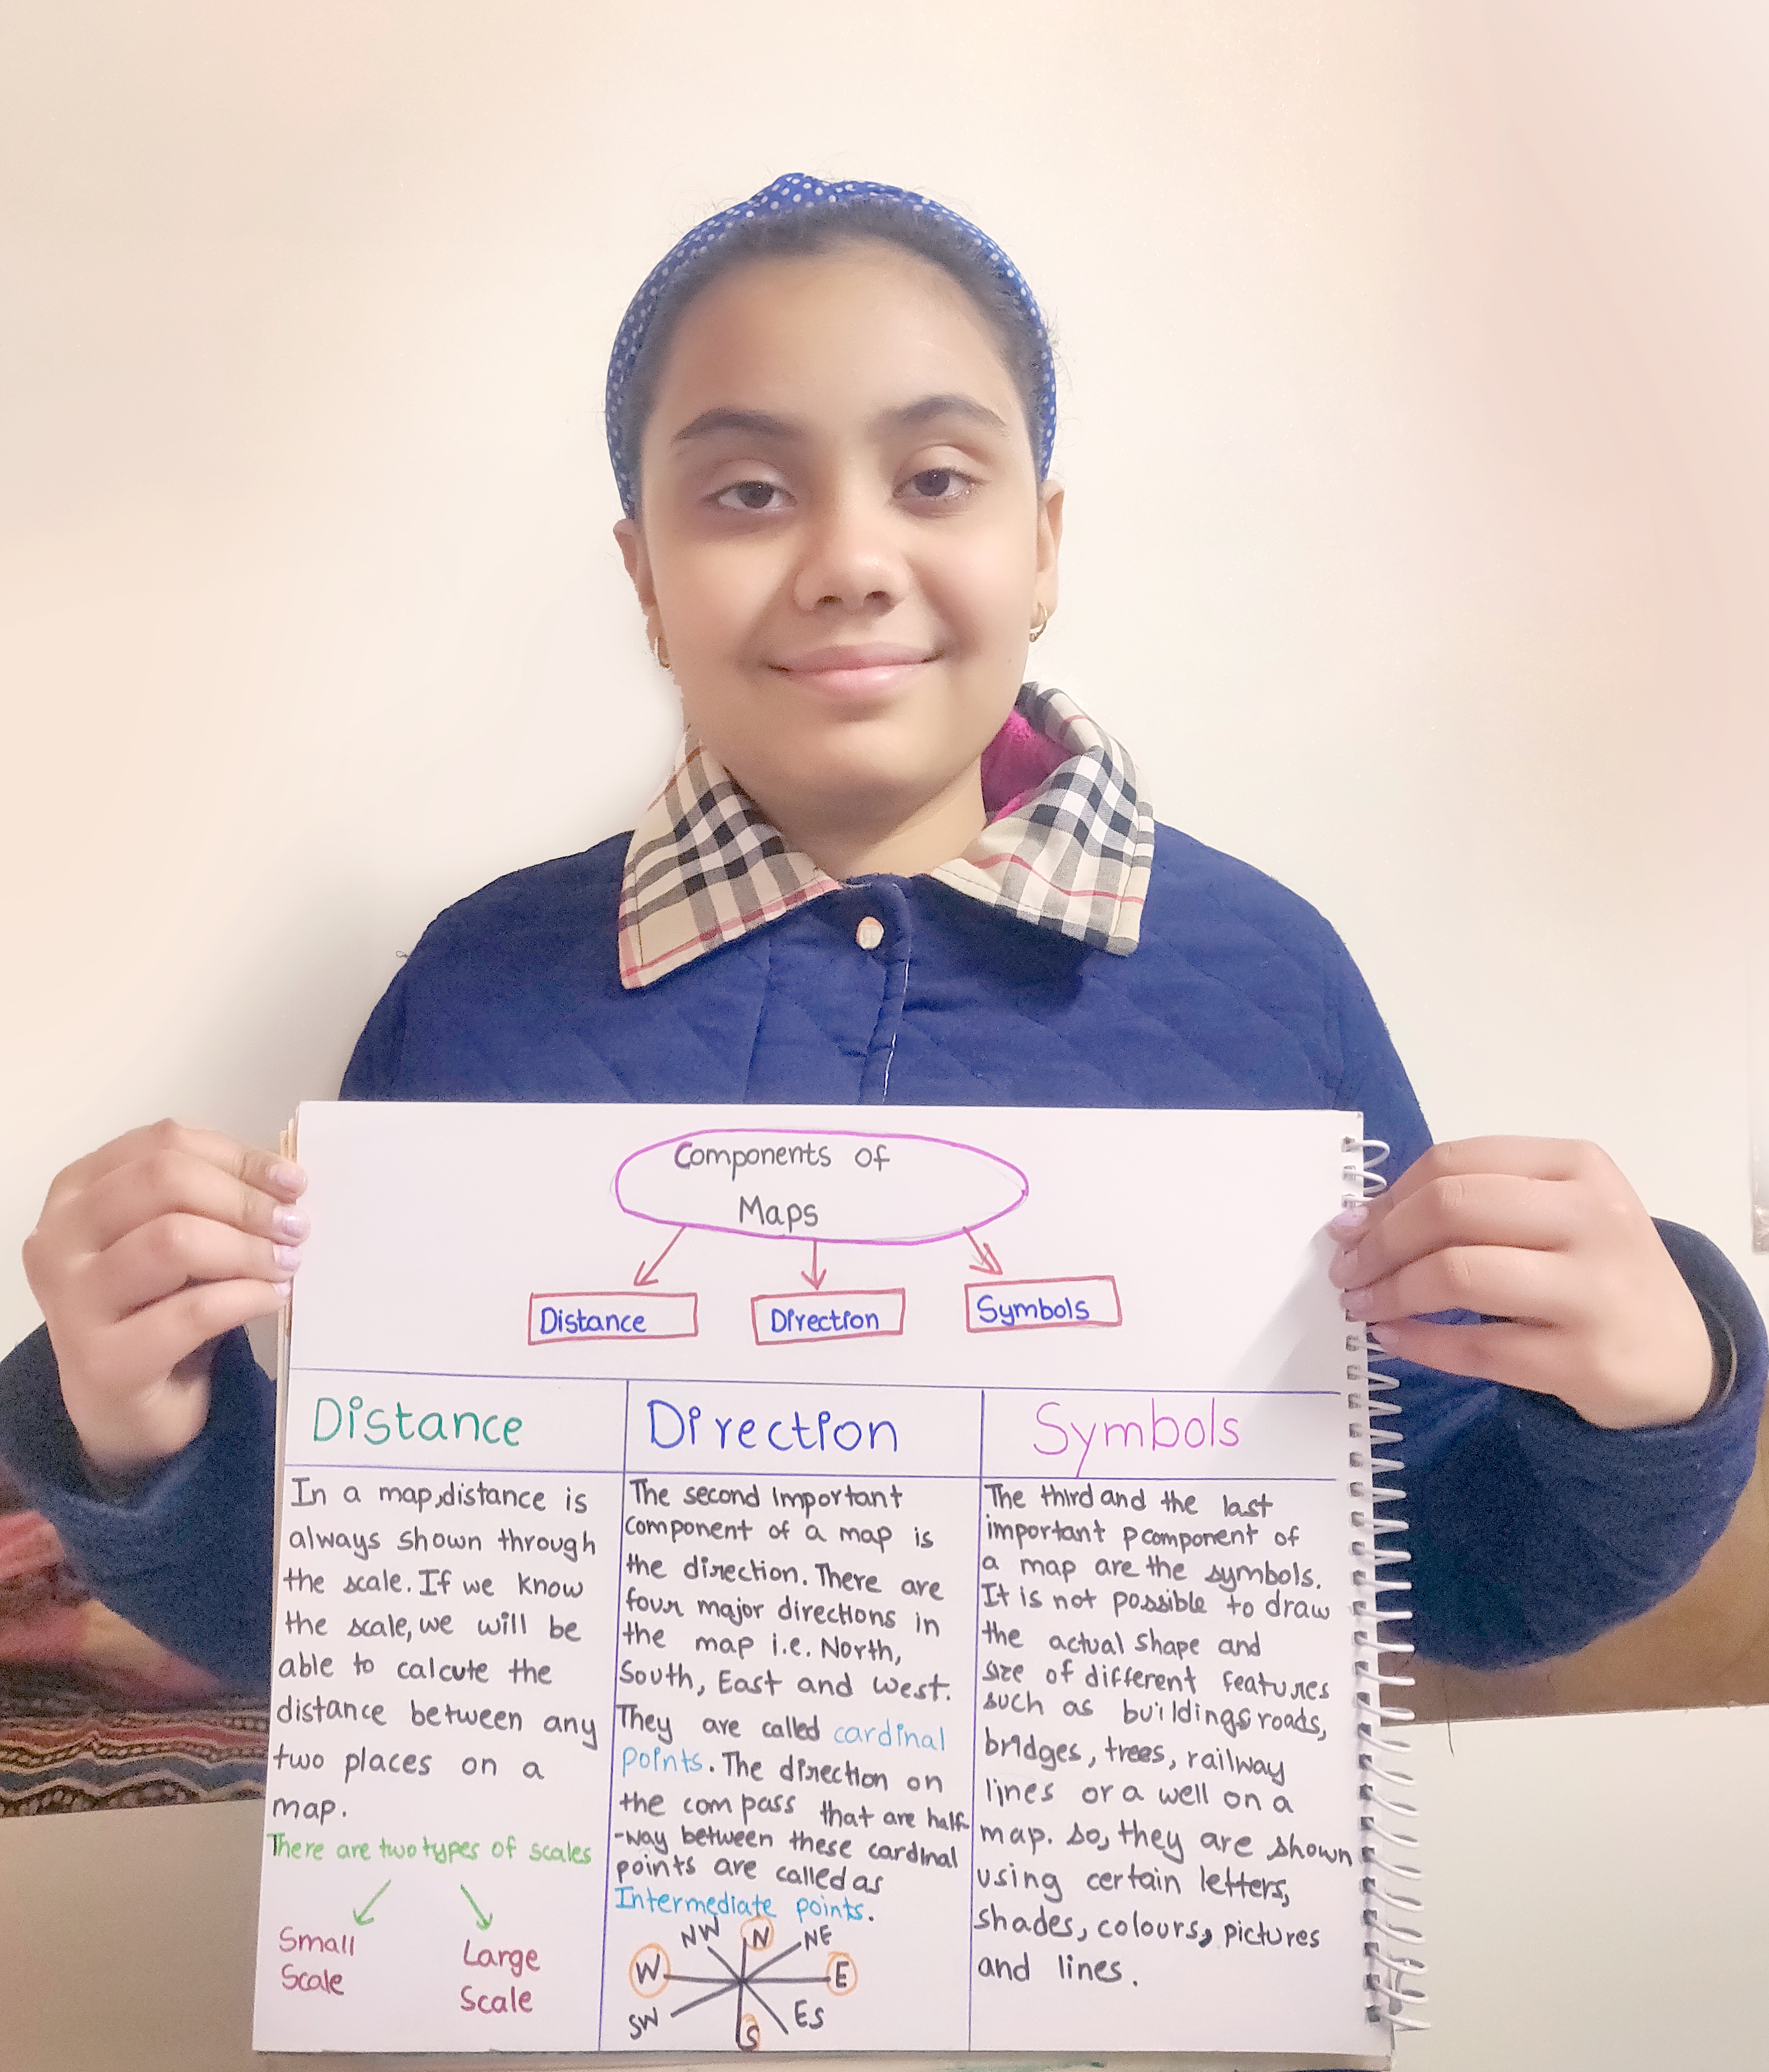 Components of
Maps
Distance
Direction
Symbols
Distance
In a map,distance is
always shown through
the scale. If we know
the scale, we will be
able to calcute the
distance between any
two places on a
map.
There are two types of scales
Small
Scale
Large
Scale
Direction
The second important
component of a map is
the direction. There are
four major directions in
the map i.e. North,
South, East and West.
They are called cardinal
points. The direction on
the compass that are half
-way between these cardinal
points are called as
Intermediate points.
NW N NE
W E
SW S ES
Symbols
The third and the last
important pcomponent of
a map are the symbols.
It is not possible to draw
the actual shape and
size of different features
such as buildings, roads,
bridges, trees, railway
lines or a well on a
map. so, they are shown
using certain letters,
shades, colours, pictures
and lines.